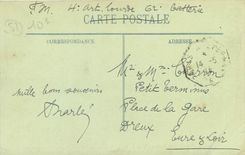 F.M. 4e Art. Lourde 6e Batterie
CARTE POSTALE
CORRESPONDANCE
Mr & Mme
Petit Terminus
Place de la Gare
Dreux
Eure & Loir
mille bons souvenirs